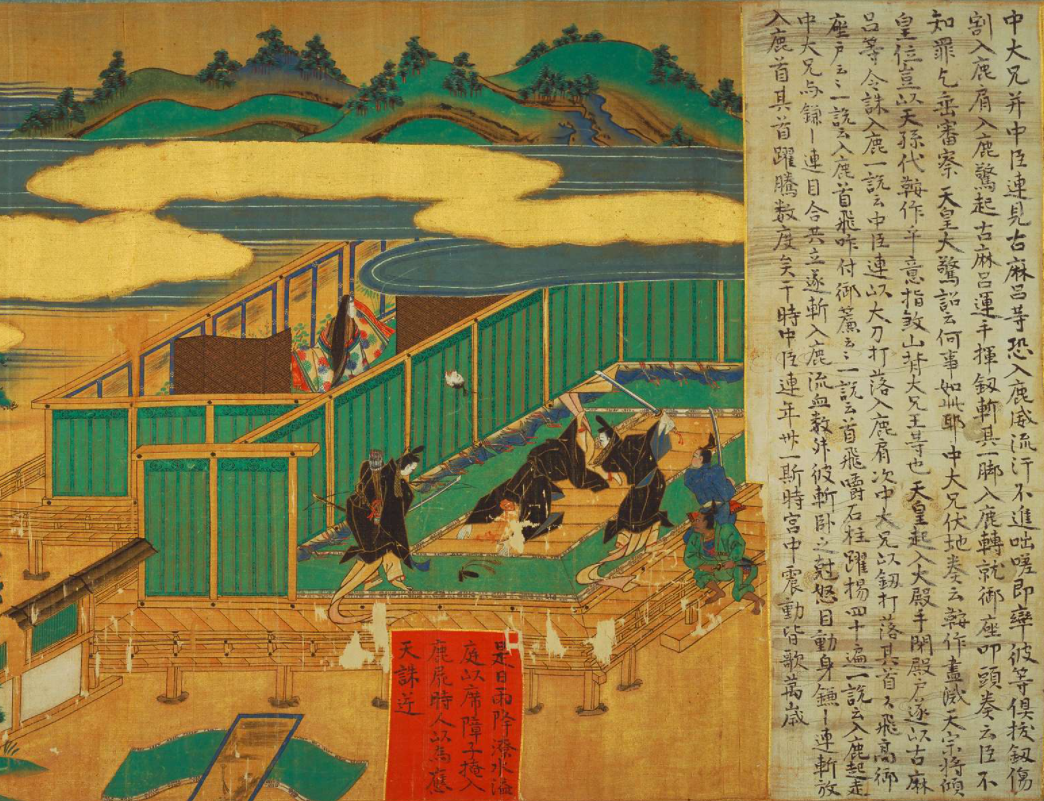 中大兄并中臣連見古麻呂等恐入鹿威流汗不進咄嗟即率彼等俱抜釼傷
割入鹿肩入鹿驚起古麻呂運手揮釼斬其一脚入鹿轉就御座叩頭奏云臣不
知罪乞垂審察天皇大驚詔云何事如此耶中大兄伏地奏云鞍作盡滅天宗将傾
皇位豈以天孫代鞍作乎意指敘山背大兄王等也天皇起入大殿手閇殿戸遂以古麻
呂等令誅入鹿一説云中臣連以大刀打落入鹿肩次中大兄以釼打落其首々飛高御
座戸云々一説云入鹿首飛咋付御簾云々一説云首飛嚼石柱躍揚四十遍一説云入鹿起走
中大兄与鎌〡連目合共立遂斬入鹿流血数汁彼斬卧之尅怒目動身鎌〡連斬放
入鹿首其首躍騰数度矣于時中臣連年卅一斯時宮中震動皆歌萬歳
是日雨降潦水溢
庭以席障子掩入
鹿屍時人以為應
天誅近